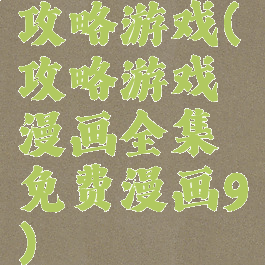 攻略游戏(
攻略游戏
漫画全集
免费漫画9
)